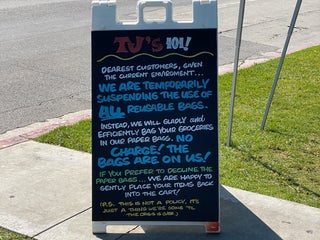 TJ'S 101!
DEAREST CUSTOMERS, GIVEN
THE CURRENT ENVIROMENT...
WE ARE TEMPORARILY
SUSPENDING THE USE OF
ALL REUSABLE BAGS.
INSTEAD, WE WILL GLADLY and
EFFICIENTLY BAG YOUR GROCERIES
IN OUR PAPER BAGS. NO
CHARGE! THE
BAGS ARE ON US!
IF YOU PREFER TO DECLINE THE
PAPER BAGS... WE ARE HAPPY TO
GENTLY PLACE YOUR ITEMS BACK
INTO THE CART!
P.S. THIS IS NOT A POLICY, IT'S
JUST A THING WE'RE DOING 'TIL
THE CRISIS IS OVER.